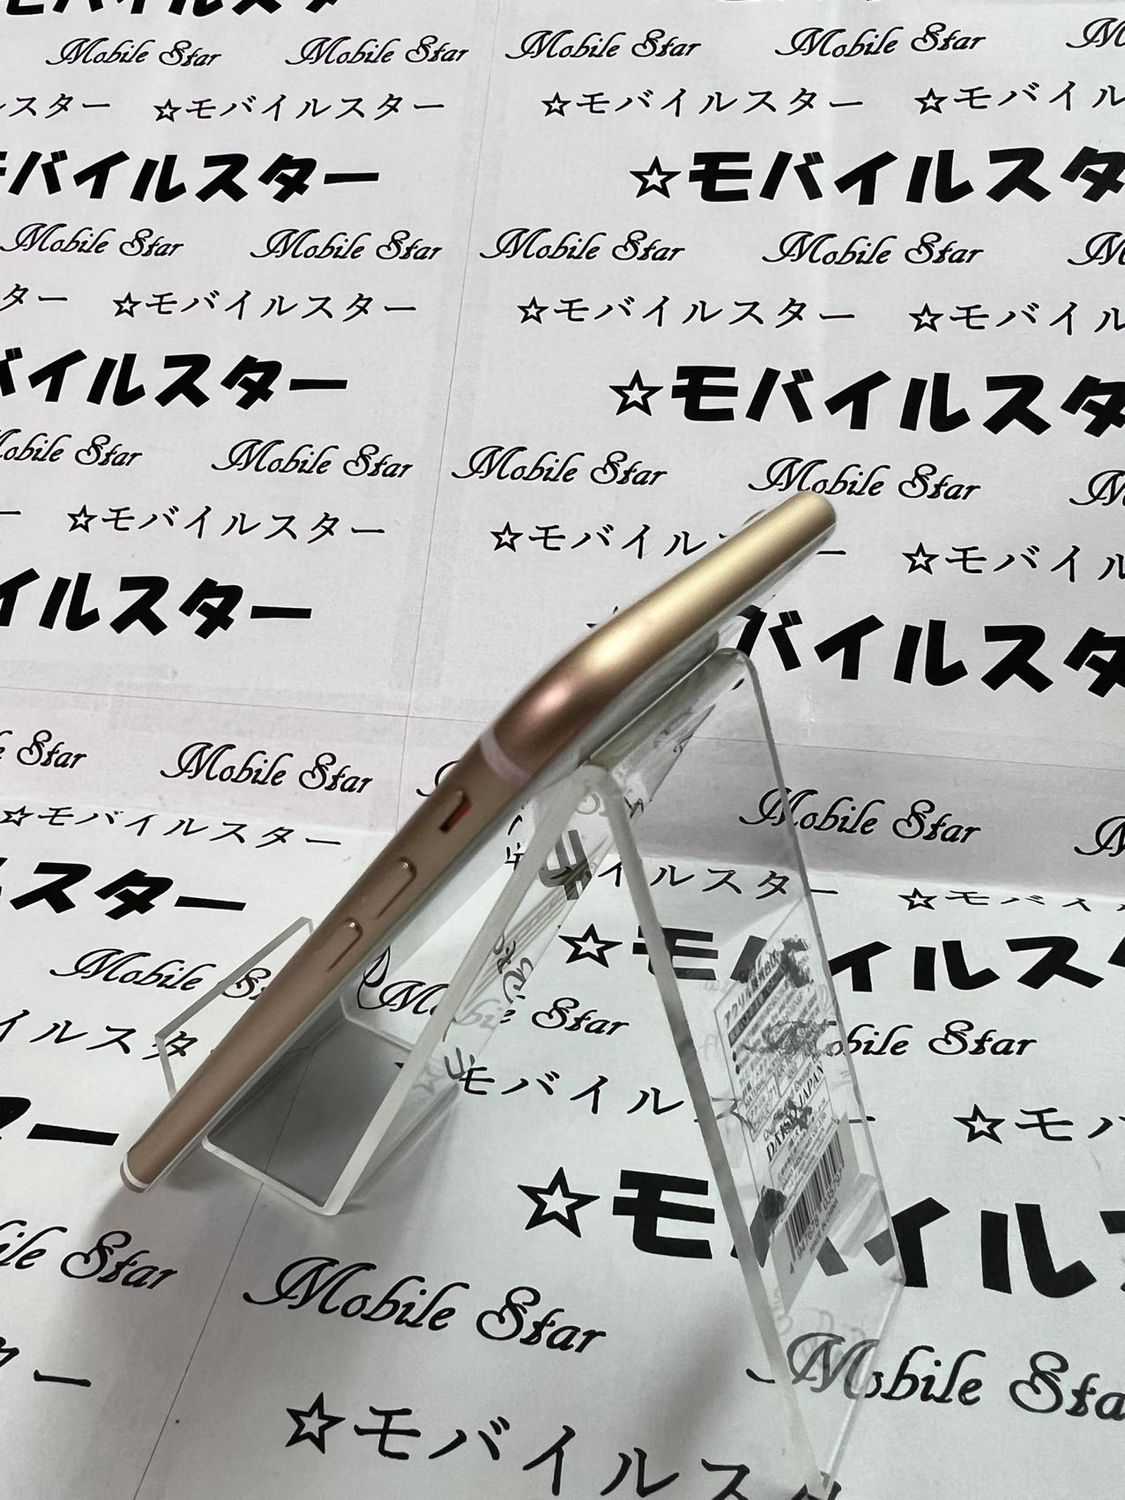 モバイルスター
Mobile Star Mobile Star Mobile Star Mobile Star
スター ☆モバイルスター ☆モバイルスター ☆モバイル
モバイルスター ☆モバイルスタ
Mobile Star Mobile Star Mobile Star Mobile Star
ター ☆モバイルスター ☆モバイルスター ☆モバイル
バイルスター ☆モバイルスタ
Mobile Star Mobile Star Mobile Star Mobile Star
☆モバイルスター ☆モバイル ☆モバイ
イルスター バイルスタ
Star Mobile Star Mobile Star
☆モバイルスター イルスター ☆モバイ
スター ☆モ イルス
Mobile S Mo Star obile Star
イルスタ モバイル ☆モ
ター ☆モ イル
DAISO JAPAN
ile Star Mobile Star Mobile Sta
ター ☆モバイルス